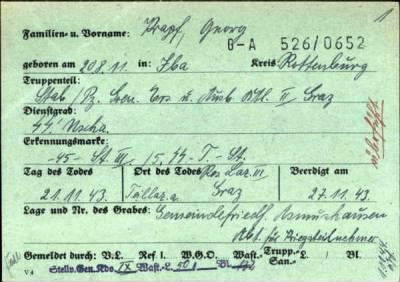 1
Familien- u. Vorname: Krapf, Georg
G-A 526/0652
geboren am 20.8.11 in: Iba Kreis: Rottenburg
Truppenteil:
Stab / Pz. Gren. Ers. u. Ausb. Btl. II Graz
Dienstgrad:
44. Uscha.
Erkennungsmarke:
-45- St. III / 5. 44-T.-St.
Tag des Todes Ort des Todes Res. Laz. III Beerdigt am
21.11.43. Graz 27.11.43.
Lage und Nr. des Grabes: Gemeindefriedh. Asmushausen
Abt. für Kriegsteilnehmer
Gemeldet durch: V.L. Ref L. W.G.O. Wast.-L. Trupp.-San.- L. Bl.
V 4 Stellv. Gen. Kdo IX Wast.-L. 501 Bl.